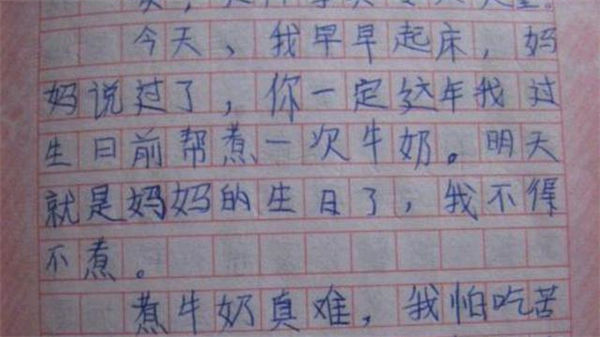 今天、我早早起床，妈
妈说过了，你一定这年我过
生日前帮煮一次牛奶。明天
就是妈妈的生日了，我不得
不煮。
煮牛奶真难，我怕吃苦